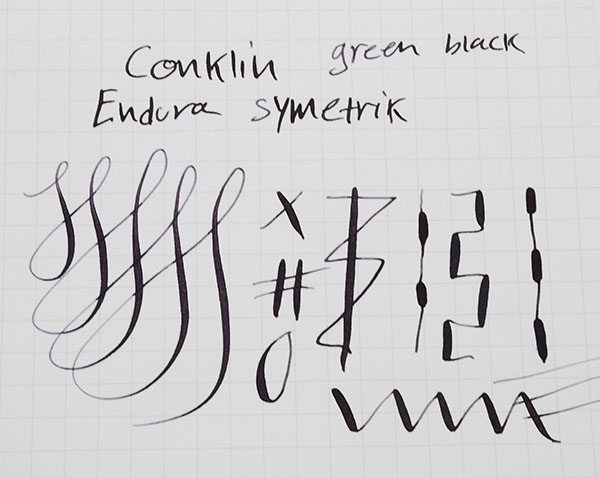 Conklin green black
Endura symetrik